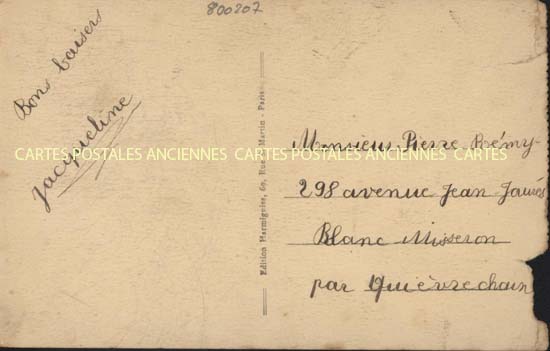 800207
Bons baisers
Jacqueline
Edition Hermignies, 69, Rue St Martin - Paris
Monsieur Pierre Rémy
298 avenue Jean Jaurès
Blanc Misseron
par Quiévrechain
CARTES POSTALES ANCIENNES CARTES POSTALES ANCIENNES CARTES